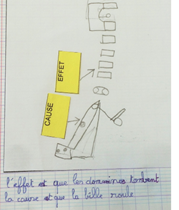 EFFET
CAUSE
l'effet est que les dominos tombent
la cause est que la bille roule